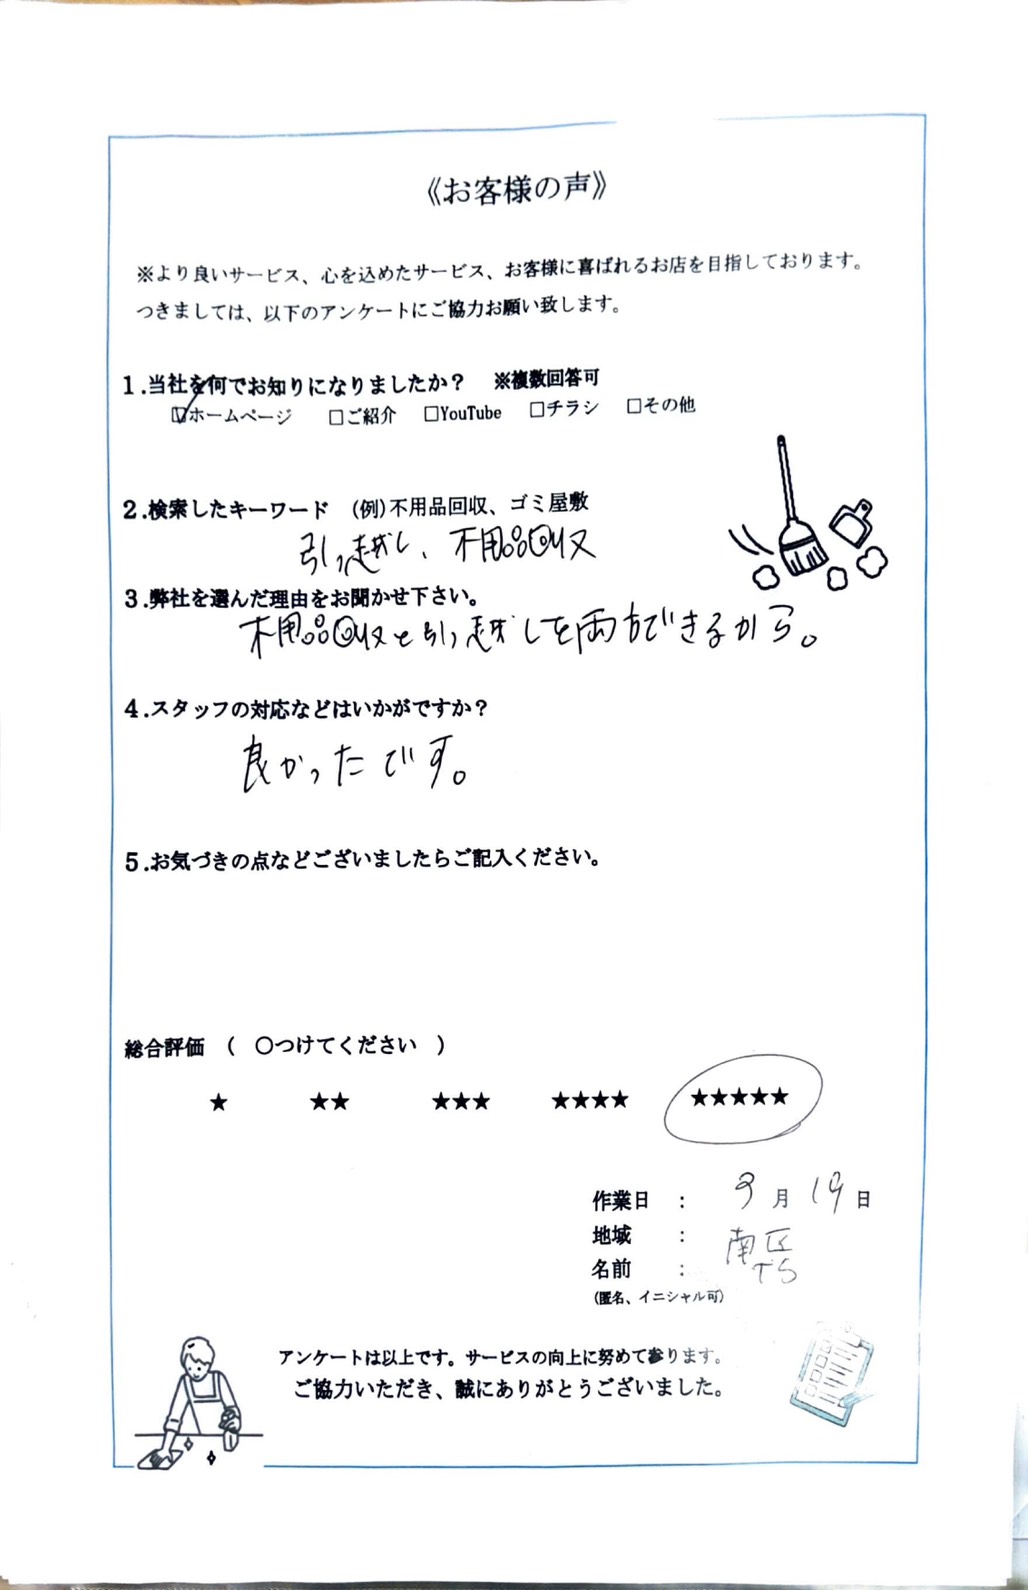 《お客様の声》
※より良いサービス、心を込めたサービス、お客様に喜ばれるお店を目指しております。
つきましては、以下のアンケートにご協力お願い致します。
1.当社を何でお知りになりましたか? ※複数回答可
☑ホームページ □ご紹介 □YouTube □チラシ □その他
2.検索したキーワード (例)不用品回収、ゴミ屋敷
引っ越し、不用品回収
3.弊社を選んだ理由をお聞かせ下さい。
不用品回収と引っ越しを両方できるから。
4.スタッフの対応などはいかがですか?
良かったです。
5.お気づきの点などございましたらご記入ください。
総合評価 ( 〇つけてください )
★ ★★ ★★★ ★★★★ ★★★★★
作業日 : 9月19日
地域 : 南区
名前 : TS
(匿名、イニシャル可)
アンケートは以上です。サービスの向上に努めて参ります。
ご協力いただき、誠にありがとうございました。